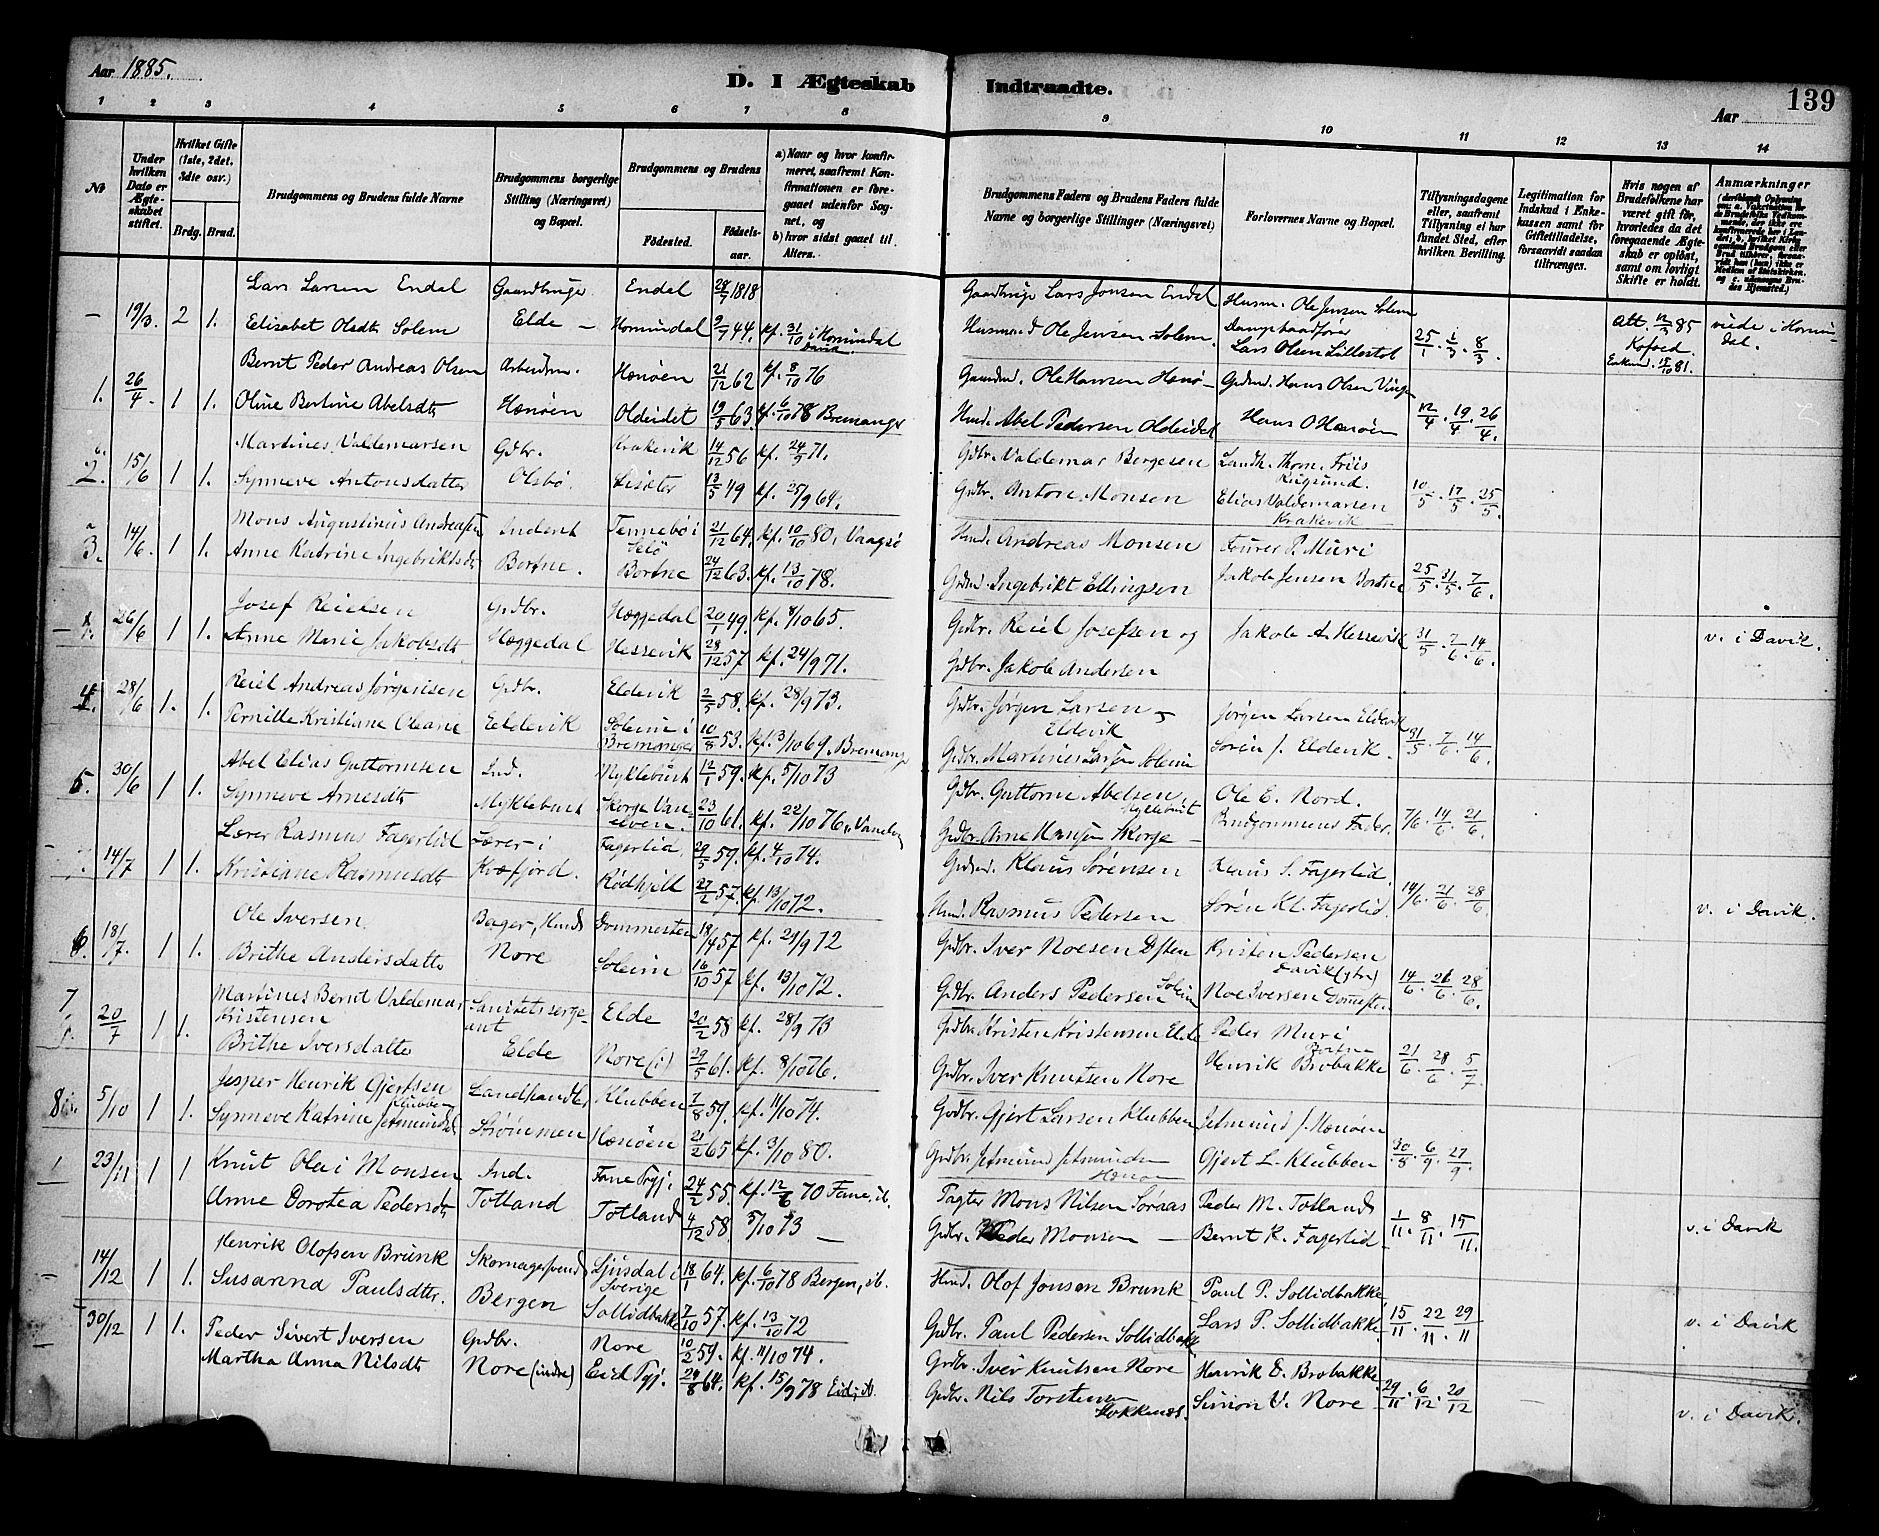 Aar 1885.
D. I Ægteskab Indtraadte.
139
Aar
1 2 3 4 5 6 7 8 9 10 11 12 13 14
No
Under hvilken Dato er Ægteskabet stiftet.
Hvilket Gifte (1ste, 2det, 3die osv.)
Brdg. Brud.
Brudgommens og Brudens fulde Navne
Brudgommens borgerlige Stilling (Næringsvei) og Bopæl.
Brudgommens og Brudens
Fødested. Fødselsaar.
a) Naar og hvor konfirmeret, saafremt Konfirmationen er foregaaet udenfor Sognet, og
b) hvor sidst gaaet til Alters.
Brudgommens Faders og Brudens Faders fulde Navne og borgerlige Stillinger (Næringsvei)
Forlovernes Navne og Bopæl.
Tillysningsdagene eller, saafremt Tillysning ei har fundet Sted, efter hvilken Bevilling.
Legitimation for Indskud i Enkekassen samt for Giftetilladelse, forsaavidt saadan tiltrænges.
Hvis nogen af Brudefolkene har været gift før, hvorledes da det foregaaende Ægteskab er opløst, samt om lovligt Skifte er holdt.
Anmærkninger
– 19/3. 2 1. Lars Larsen Endal Gaardbruger Endal 28/7 1818 Gaardbruger Lars Jonsen Endal Husm. Ole Jensen Solem
Elisabet Olsdtr Solem Elde – Hornindal 9/7 44. kf. 31/10 i Hornindal Husmand Ole Jensen Solem. Dampbaadfører Lars Olsen Lillestøl 25/1. 1/3. 8/3 Att. 12/3 85 Kofoed. viede i Hornindal.
1. 26/4. 1 1. Bernt Peder Andreas Olsen Arbeidsm. Hænøen 21/12 62 kf. 8/10 76 Gaardmd. Ole Hansen Hænø – Grdmd. Hans Olsen Vingen
Oline Bertine Abelsdtr Hænøen Oldeidet 19/5 63. kf. 6/10 78 Bremanger Husmd. Abel Pedersen Oldeidet Hans O Hænøen 12/4. 19/4. 26/4.
2. 15/6 1 1. Martines Valdemarsen Gdbr. Krakevik 14/12 56 kf. 24/9 71. Gdbr. Valdemar Bergesen Landh. Thom. Friis Rugsund.
Synneve Antonsdatter Olsbø. Lisæter 13/5 49 kf. 25/9 64. Grdbr. Anton Monsen Elias Valdemarsen Krakevik 10/5. 17/5. 25/5.
3. 14/6. 1 1. Mons Augustinus Andreasen Inderst Tennebø i Selø 21/12 64. kf. 10/10 80. Vaagsø Husmd. Andreas Monsen Fourer P. Muri
Anne Katrine Ingebriktsdtr Bortne. Bortne 24/12 63. kf. 13/10 78. Grdmd. Ingebrikt Ellingsen Jakob Jensen Bortne 25/5. 31/5. 7/6.
– 26/6 1 1. Josef Reielsen Grdbr. Hæggedal 20/1 49. kf. 8/10 65. Grdbr. Reiel Josefsen og Jakob A. Hessevik 31/5. 7/6. 14/6. v. i Davik.
Anne Marie Jakobsdtr. Hæggedal Hessevik 28/12 57 kf. 24/9 71. Grdbr. Jakob Andersen
4. 28/6 1. 1. Reiel Andreas Jørgensen Grdbr. Eldevik 2/5 58. kf. 28/9 73. Grdbr. Jørgen Larsen Eldevik Jørgen Larsen Eldevik
Pernille Kristiane Oleane Eldevik Soleim i Bremanger 10/8 53. kf. 3/10 69, Bremanger Grdbr. Martines Larsen Soleim Søren J. Eldevik. 31/5. 7/6. 14/6.
5. 30/6 1 1. Abel Elias Guttormsen Ind. Myklebust 12/1 59. kf. 5/10 73 Gdbr. Guttorm Abelsen Myklebust Ole E. Nord.
Synneve Arnesdtr Myklebust Skorge Vanelven. 23/10 61. kf. 22/10 76, Vanelven Grdbr. Arne Hansen Skorge – Brudgommens Fader. 7/6. 14/6. 21/6.
14/7 1 1. Lærer Rasmus Fagerlid Lærer i Fagerlia. 29/5 59. kf. 4/10 74. Grdmd. Klaus Sørensen Klaus S. Fagerlid
Kristiane Rasmusdtr Kvæfjord. Rødhjell 27/2 57. kf. 13/10 72. Husmd. Rasmus Pedersen Søren Kl. Fagerlid 14/6. 21/6. 28/6. v. i Davik.
6. 18/7. 1 1. Ole Iversen. Bager, Husmd Dommesten 18/4 57 kf. 21/9 72 Grdbr. Iver Noesen Dsten Kristen Pedersen Davik (gbr)
Brithe Andersdatter Nore Soleim 16/10 57 kf. 13/10 72. Grdbr. Anders Pedersen Soleim Noe Iversen Domesten. 14/6. 26/6. 28/6.
7 20/7 1 1. Martines Bernt Valdemar Kristensen Sanitetssergeant Elde 20/2 58 kf. 28/9 73 Grdbr. Kristen Kristensen Elde Peder Muri Bortne
Brithe Iversdatter Elde Nore (i) 29/5 61. kf. 8/10 76. Grdbr. Iver Knutsen Nore Henrik Brobakke 21/6. 28/6. 5/7
8. 5/10 1 1. Jesper Henrik Gjertsen Klubben Landhandler Klubben 7/8 59. kf. 11/10 74. Grdbr. Gjert Larsen Klubben Jetmund J. Hænøen
Synneve Katrine Jetmundsd Strømmen Hænøen 21/2 65 kf. 3/10 80. Grdbr. Jetmund Jetmundsen Hænøen Gjert L. Klubben 30/8. 6/9. 27/9.
– 23/11 1 1 Knut Olai Monsen Ind. Fane Pgj. 24/2 55. kf. 12/6 70 Fane, ib. Pagter Mons Nilsen Søraas Peder M. Totland
Anne Dorotea Pedersdtr Totland Totland 4/12 58. 5/10 73 – Grdbr. Peder Monsen – Bernt R. Fagerlid 1/11. 8/11. 15/11. v. i Davik
– 14/12 1 1. Henrik Olofsen Brunk Skomagersvend Ljusdal i Sverige 18/1 64. kf. 6/10 78 Bergen, ib. Husmd. Olof Jonsen Brunk Paul P. Sollidbakke
Susanna Paulsdtr. Bergen Sollidbakke 7/10 57. kf. 13/10 72 Grdbr. Paul Pedersen Sollidbakke Lars P. Sollidbakke 15/11. 22/11. 29/11 v. i Davik
– 30/12 1 1. Peder Sivert Iversen Grdbr. Nore 10/2 59. kf. 11/10 74. Grdbr. Iver Knutsen Nore Henrik E. Brobakke
Martha Anna Nilsdtr Nore (indre) Eid Pgj. 24/8 64. kf. 15/9 78 Eid, ib. Grdbr. Nils Torstensen Hokkenes. Simon V. Nore 29/11. 6/12. 20/12 v. i Davik.